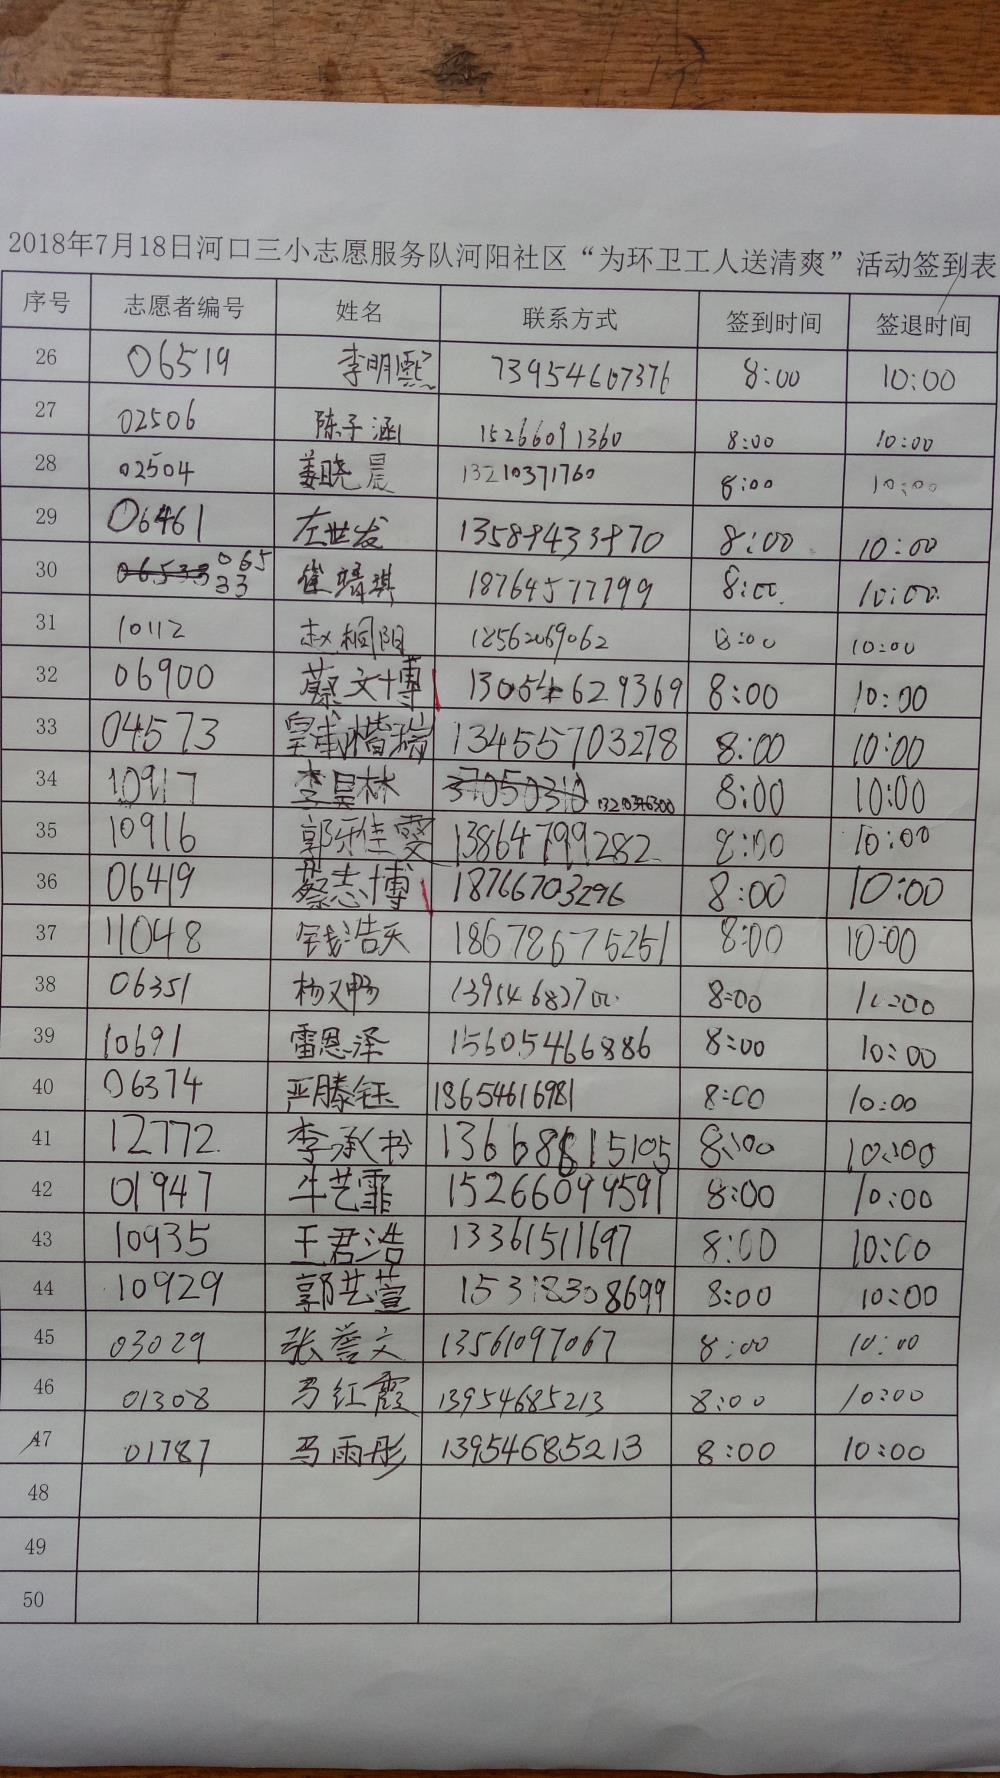 2018年7月18日河口三小志愿服务队河阳社区“为环卫工人送清爽”活动签到表
序号 志愿者编号 姓名 联系方式 签到时间 签退时间
26 06519 李明熙 73954607376 8:00 10:00
27 02506 陈子涵 15266091360 8:00 10:00
28 02504 姜晓晨 13210371760 8:00 10:00
29 06461 左世发 8:00 10:00
30 06533 崔靖琪 18764577799 8:00 10:00
31 10112 赵桐阳 18562069062 8:00 10:00
32 06900 蔡文博 13054629369 8:00 10:00
33 04573 皇甫楷瑞 134555703278 8:00 10:00
34 10917 李昊林 8:00 10:00
35 10916 郭雅雯 13864799282 8:00 10:00
36 06419 蔡志博 18766703296 8:00 10:00
37 11048 钱浩天 18678675251 8:00 10:00
38 06351 杨又畅 8:00 10:00
39 10691 雷恩泽 15605466886 8:00 10:00
40 06374 严滕钰 18654616981 8:00 10:00
41 12772 李承书 13668815105 8:00 10:00
42 01947 牛艺霏 15266099591 8:00 10:00
43 10935 王君浩 13361511697 8:00 10:00
44 10929 郭艺萱 15318308699 8:00 10:00
45 03029 张誉文 13561097067 8:00 10:00
46 01308 马红霞 13954685213 8:00 10:00
47 01787 马雨彤 13954685213 8:00 10:00
48
49
50